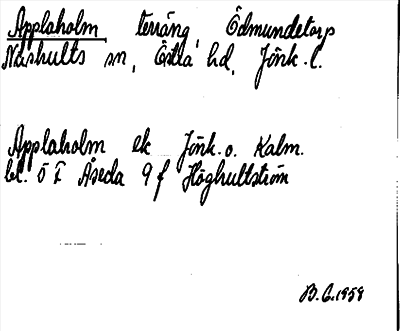 Applaholm terräng, Ödmundetorp
Näshults sn, Östra hd, Jönk. l.
Applaholm ek Jönk. o. Kalm.
bl. ö I Åseda 9 f Höghultström
B.G. 1958